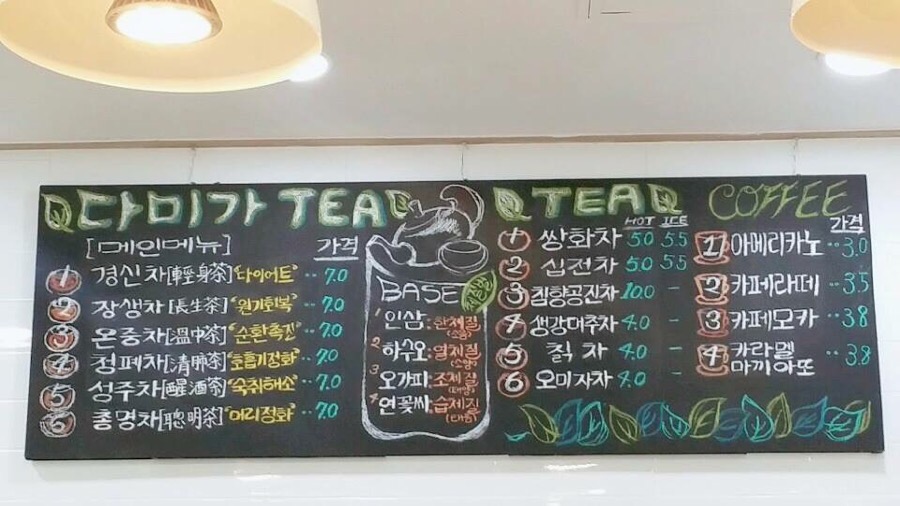 다미가 TEA
[메인메뉴] 가격
1 경신차[輕身茶] "다이어트" ·· 7.0
2 장생차[長生茶] "원기회복" ·· 7.0
3 온중차[溫中茶] "순환촉진" ·· 7.0
4 청폐차[清肺茶] "호흡기정화" ·· 7.0
5 성주차[醒酒茶] "숙취해소" ·· 7.0
6 총명차[聰明茶] "머리정화" ·· 7.0
BASE
1 인삼: 한체질
(소음)
2 하수오: 열체질
(소양)
3 오가피: 조체질
(태양)
4 연꽃씨: 습체질
(태음)
TEA
HOT ICE
1 쌍화차 5.0 5.5
2 십전차 5.0 5.5
3 침향공진차 10.0 -
4 생강대추차 4.0 -
5 칡차 4.0 -
6 오미자차 4.0 -
COFFEE
가격
1 아메리카노 ·· 3.0
2 카페라떼 ·· 3.5
3 카페모카 ·· 3.8
4 카라멜 마끼아또 ·· 3.8